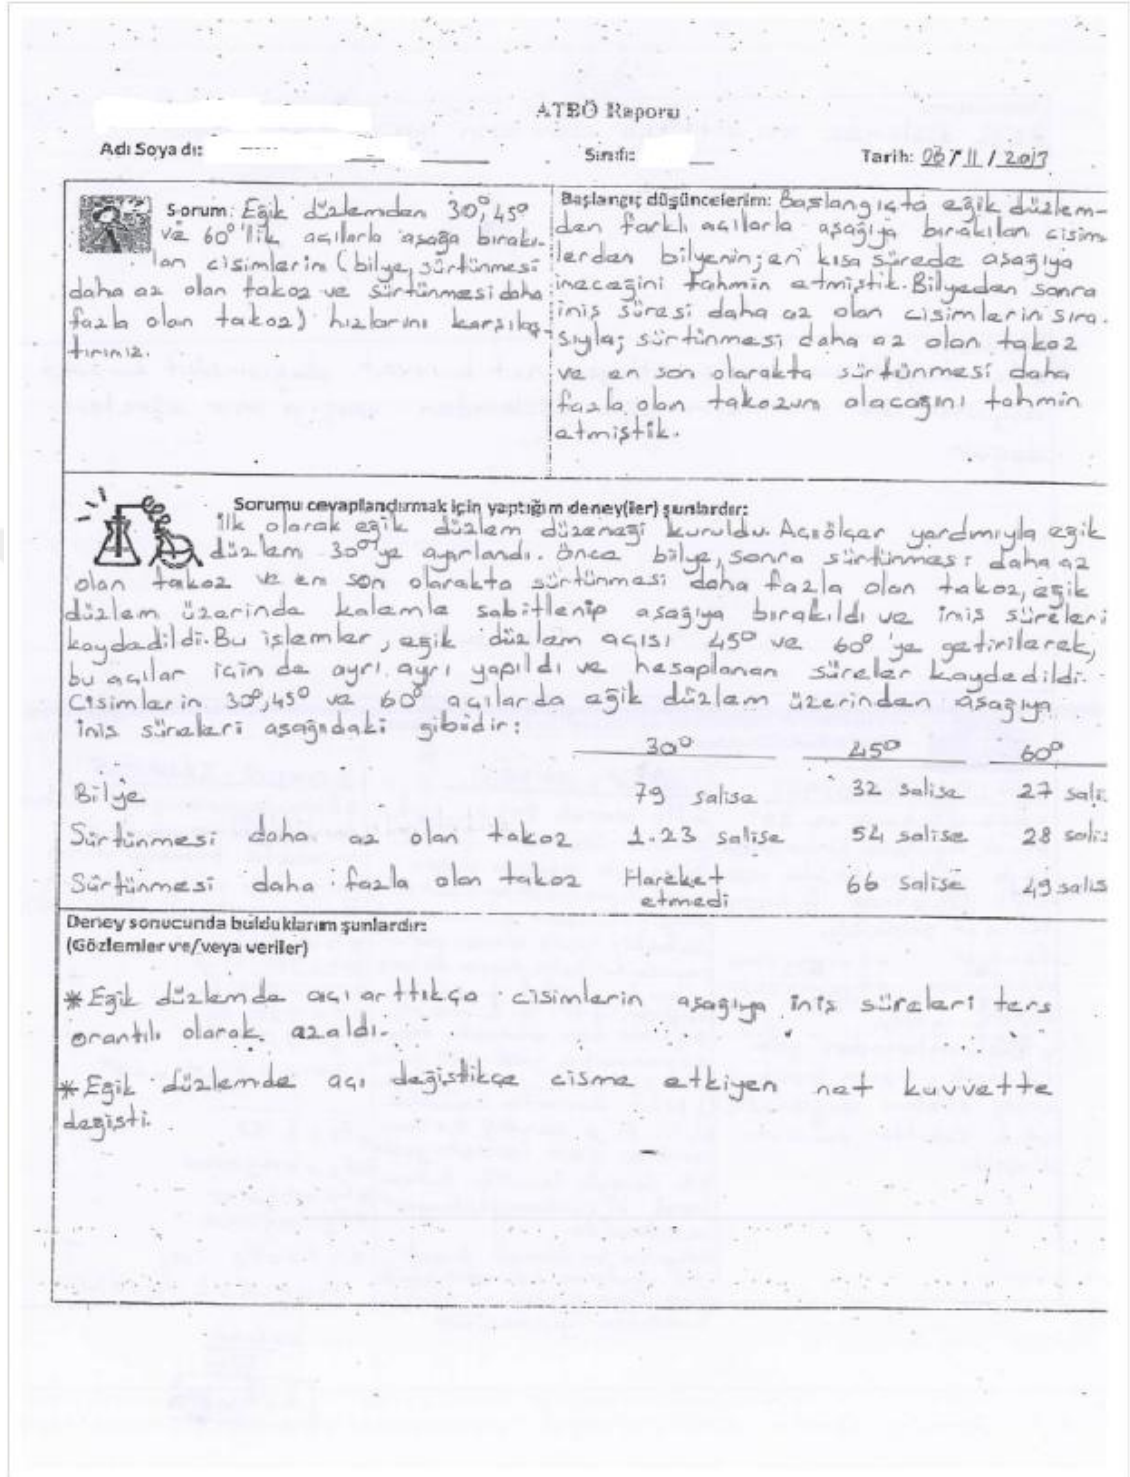 ATBÖ Raporu
Adı Soyadı:
Sınıfı:
Tarih: 06/11/2017
Sorum: Eğik düzlemden 30°, 45°
ve 60°'lik açılarla aşağa bırakı-
lan cisimlerin (bilye, sürtünmesi
daha az olan takoz ve sürtünmesi daha
fazla olan takoz) hızlarını karşılaş-
tırınız.
Başlangıç düşüncelerim: Başlangıçta eğik düzlem-
den farklı açılarla aşağıya bırakılan cisim
lerden bilyenin; en kısa sürede aşağıya
ineceğini tahmin etmiştik. Bilyeden sonra
iniş süresi daha az olan cisimlerin sıra-
sıyla; sürtünmesi daha az olan takoz
ve en son olarakta sürtünmesi daha
fazla olan takozun olacağını tahmin
etmiştik.
Sorumu cevaplandırmak için yaptığım deney(ler) şunlardır:
İlk olarak eğik düzlem düzeneği kuruldu. Açıölçer yardmıyla eğik
düzlem 30°'ye ayarlandı. Önce bilye, sonra sürtünmesi daha az
olan takoz ve en son olarakta sürtünmesi daha fazla olan takoz, eğik
düzlem üzerinde kalemle sabitlenip aşağıya bırakıldı ve iniş süreleri
kaydedildi. Bu işlemler, eğik düzlem açısı 45° ve 60°'ye getirilerek,
bu açılar için de ayrı ayrı yapıldı ve hesaplanan süreler kaydedildi.
Cisimlerin 30°, 45° ve 60° açılarda eğik düzlem üzerinden aşağıya
iniş süreleri aşağıdaki gibidir:
30° 45° 60°
Bilye 79 salise 32 salise 27 sali
Sürtünmesi daha az olan takoz 1.23 salise 54 salise 28 salis
Sürtünmesi daha fazla olan takoz Hareket etmedi 66 salise 49 salis
Deney sonucunda bulduklarım şunlardır:
(Gözlemler ve/veya veriler)
* Eğik düzlemde açı arttıkça cisimlerin aşağıya iniş süreleri ters
orantılı olarak azaldı.
* Eğik düzlemde açı değiştikçe cisme etkiyen net kuvvette
değişti.